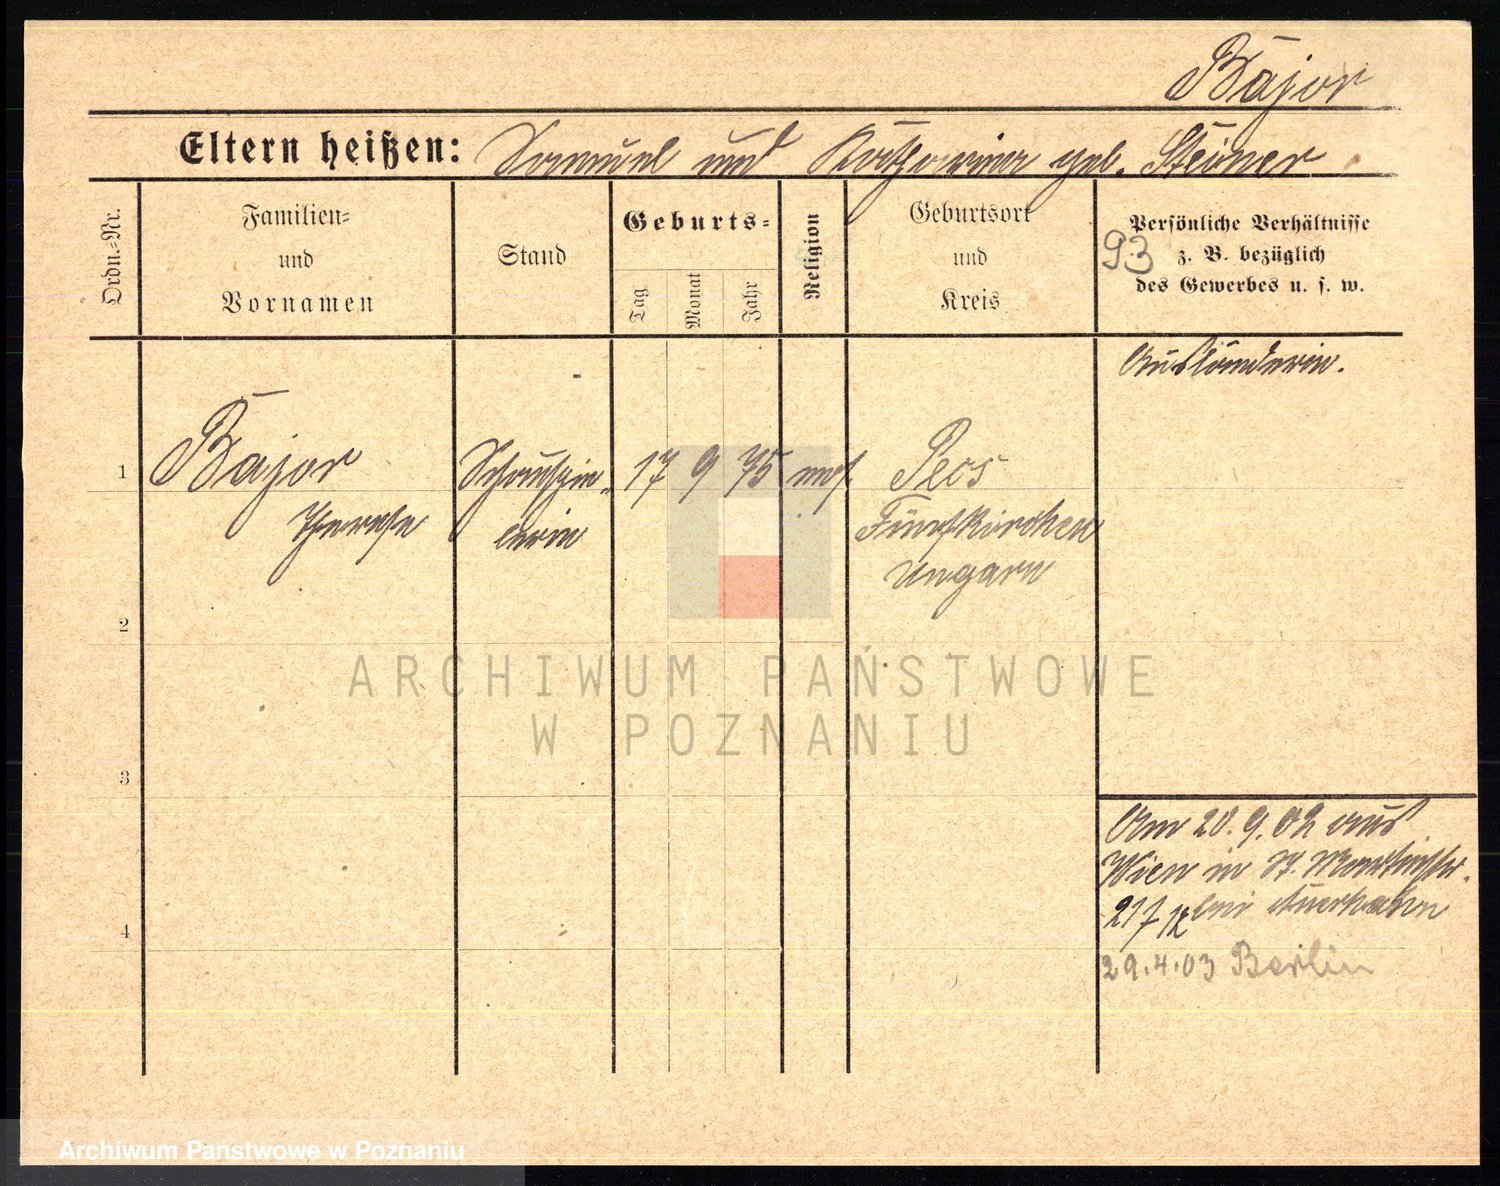 Bajor
Eltern heißen: Samuel und Katharina geb. Steiner.
Ordn.-Nr.
Familien-
und
Vornamen
Stand
Geburts-
Tag
Monat
Jahr
Religion
Geburtsort
und
Kreis
Persönliche Verhältnisse
z. B. bezüglich
des Gewerbes u. s. w.
93
Ausländerin.
1
Bajor
Therese
Schauspie-
lerin
17
9
75
mos.
Pecs
Fünfkirchen
Ungarn
2
3
4
Am 20.9.02 aus
Wien in St. Martinstr.
217 bei Auerhahn
29.4.03 Berlin
ARCHIWUM PAŃSTWOWE
W POZNANIU
Archiwum Państwowe w Poznaniu